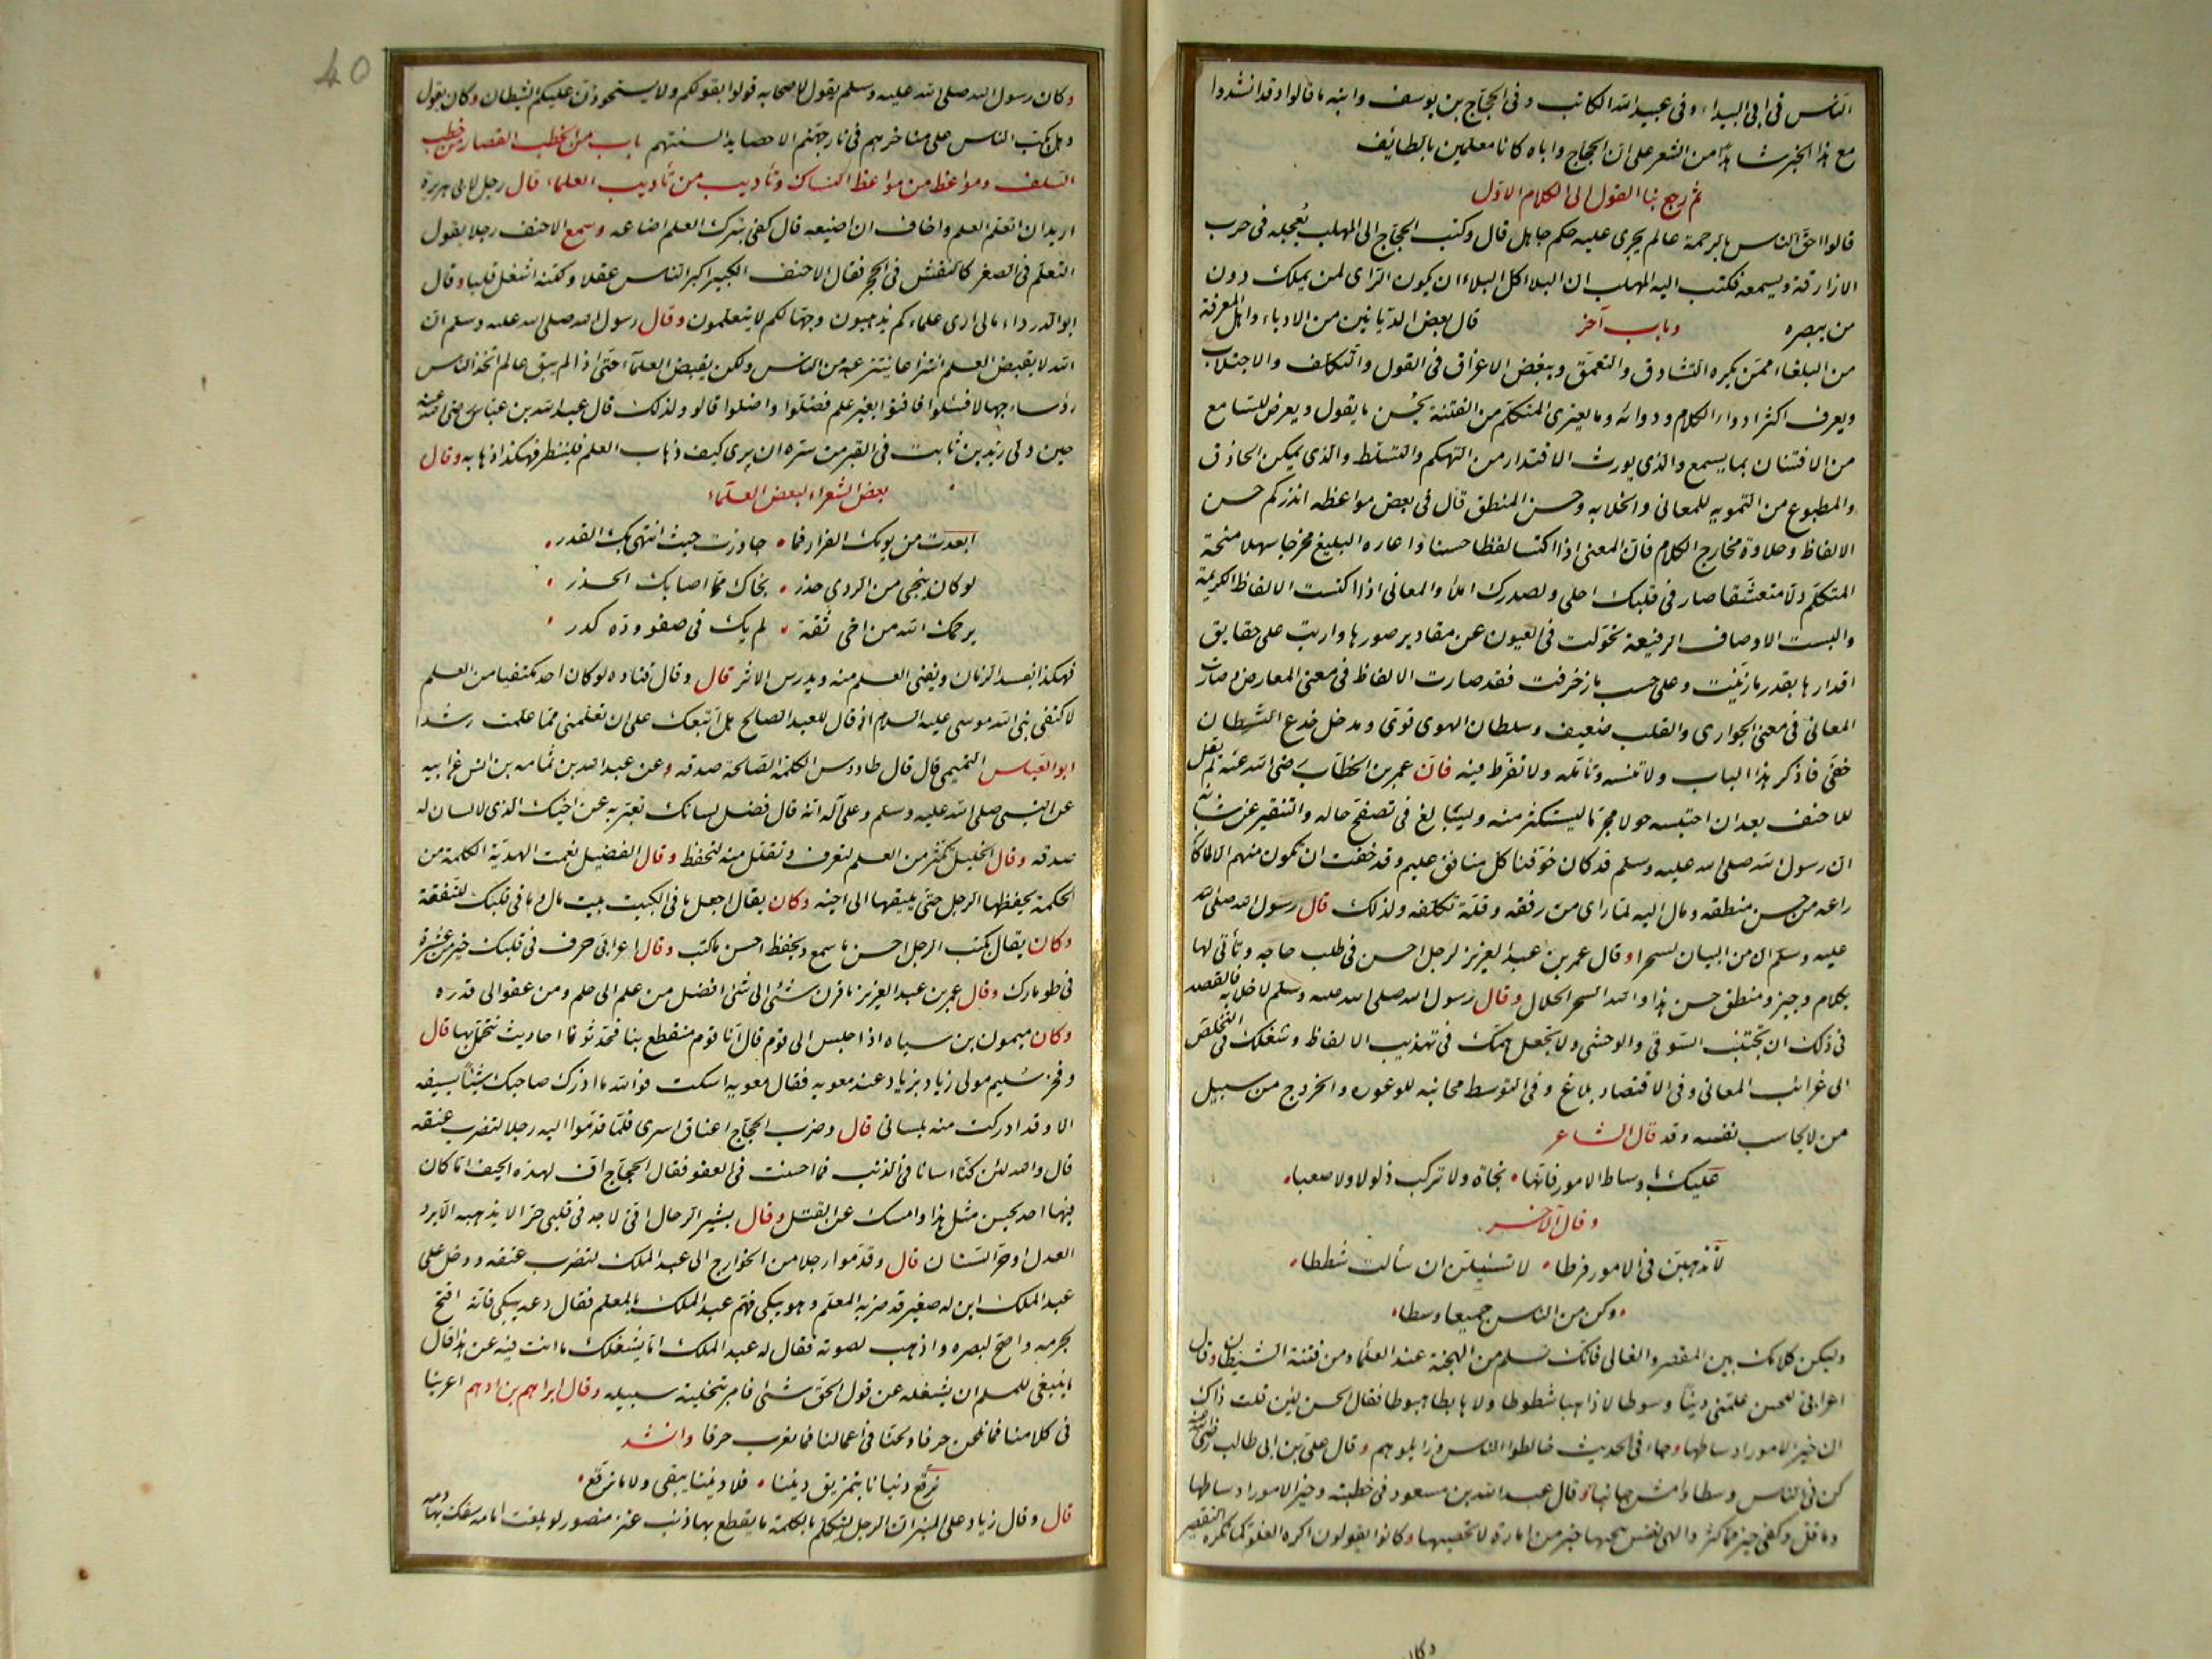 الناس في ابي البيداء وفي عبيد الله الكاتب وفي الحجاج بن يوسف وابيه ما قالوا وقد انشدوا
مع هذا الخبر شاهدا من الشعر على ان الحجاج واباه كانا معلمين بالطائف
ثم رجع بنا القول الى الكلام الاول
قالوا احق الناس بالرحمة عالم يجرى عليه حكم جاهل قال وكتب الحجاج الى المهلب يعجله في حرب
الازارقة ويسمعه فكتب اليه المهلب ان البلاء كل البلاء ان يكون الراى لمن يملك دون
من يبصره وباب آخر قال بعض الربانيين من الادباء واهل المعرفة
من البلغاء ممن يكره التشادق والتعمق ويبغض الاغراق في القول والتكلف والاجتلاب
ويعرف اكثر ادواء الكلام ودوائه وما يعترى المتكلم من الفتنة بحسن ما يقول ويعرض للسامع
من الافتتان بما يسمع والذي يورث الاقتدار من التهكم والتسلط والذي يمكن الحاذق
والمطبوع من التمويه للمعاني والخلابه وحسن المنطق قال في بعض مواعظه انذركم حسن
الالفاظ وحلاوة مخارج الكلام فان المعنى اذا اكتسا لفظا حسنا واعاره البليغ مخرجا سهلا منحة
المتكلم دلا متعشقا صار في قلبك احلى ولصدرك املأ والمعاني اذا اكتست الالفاظ الكريمة
والبست الاوصاف الرفيعة تحولت في العيون عن مقادير صورها واربت على حقايق
اقدارها بقدر ما زينت وعلى حسب ما زخرفت فقد صارت الالفاظ في معنى المعارض وصارت
المعاني في معنى الجواري والقلب ضعيف وسلطان الهوى قوى ومدخل خدع الشيطان
خفي فاذكر هذا الباب ولا تنسه وتأمله ولا تفرط فيه فان عمر بن الخطاب رضي الله عنه لم يقل
للاحنف بعد ان احتبسه حولا مجرما ليستكثر منه وليبالغ في تصفح حاله والتنقير عن شانه
ان رسول الله صلى الله عليه وسلم قد كان خوفنا كل منافق عليم وقد خفت ان تكون منهم الا لما كان
راعه من حسن منطقه ومال اليه لما راى من رفقه وقلة تكلفه ولذلك قال رسول الله صلى الله
عليه وسلم ان من البيان لسحرا وقال عمر بن عبد العزيز لرجل احسن في طلب حاجه وتأتى لها
بكلام وجيز ومنطق حسن هذا والله السحر الحلال وقال رسول الله صلى الله عليه وسلم لا خلابه فالقصد
في ذلك ان تجتنب السوقي والوحشي ولا تجعل همك في تهذيب الالفاظ وشغلك في التخلص
الى غرائب المعاني وفي الاقتصاد بلاغ وفي التوسط مجانبه للوعوره والخروج من سبيل
من لا يحاسب نفسه وقد قال الشاعر
عليك باوساط الامور فانها نجاة ولا تركب ذلولا ولا صعبا
وقال الآخر
لا تذهبن في الامور فرطا لا تسئلن ان سألت شططا
وكن من الناس جميعا وسطا
وليكن كلامك بين المقصر والغالي فانك تسلم من الهجنة عند العلماء ومن فتنة الشيطان وقال
اعرابي للحسن علمني دينا وسوطا لا ذاهبا شطوطا ولا هابطا هبوطا فقال الحسن لئن قلت ذاك
ان خير الامور اوساطها وجاء في الحديث خالطوا الناس وزايلوهم وقال علي بن ابي طالب رضي الله عنه
كن في الناس وسطا وامش جانبا وقال عبد الله بن مسعود في خطبته وخير الامور اوساطها
وما قل وكفى خير مما كثر والهى نفس تنجيها خير من امارة لا تحصيها وكانوا يقولون اكره الغلو كما تكره التقصير
وكان
40
وكان رسول الله صلى الله عليه وسلم يقول لاصحابه قولوا بقولكم ولا يستحوذن عليكم الشيطان وكان يقول
وهل يكب الناس على مناخرهم في نار جهنم الا حصايد السنتهم باب من الخطب القصار من خطب
السلف ومواعظ من مواعظ النساك وتأديب من تأديب العلماء قال رجل لابى هريرة
اريد ان اتعلم العلم واخاف ان اضيعه قال كفى بترك العلم اضاعه وسمع الاحنف رجلا يقول
التعلم في الصغر كالنقش في الحجر فقال الاحنف الكبير اكبر الناس عقلا ولكنه اشغل قلبا وقال
ابو الدرداء مالى ارى علماءكم يذهبون وجهالكم لا يتعلمون وقال رسول الله صلى الله عليه وسلم ان
الله لا يقبض العلم انتزاعا ينتزعه من الناس ولكن يقبض العلماء حتى اذا لم يبق عالم اتخذ الناس
رؤساء جهالا فسئلوا فافتوا بغير علم فضلوا واضلوا قالو ولذلك قال عبد الله بن عباس رضي الله عنه
حين دلى زيد بن ثابت في القبر من سره ان يرى كيف ذهاب العلم فلينظر فهكذا ذهابه وقال
بعض الشعراء لبعض العلماء
ابعدت من يومك الفرار فما جاوزت حيث انتهى بك القدر
لو كان ينجي من الردي حذر نجاك مما اصابك الحذر
يرحمك الله من اخي ثقة لم يك في صفو وده كدر
فهكذا يفسد الزمان ويفنى العلم منه ويدرس الاثر قال وقال قتاده لو كان احد مكتفيا من العلم
لاكتفى نبي الله موسى عليه السلام اذ قال للعبد الصالح هل اتبعك على ان تعلمني مما علمت رشدا
ابو العباس التميمي قال قال طاووس الكلمة الصالحة صدقه وعن عبد الله بن ثمامه بن انس عن ابيه
عن النبي صلى الله عليه وسلم وعلى آله انه قال فضل لسانك تعبر به عن اخيك الذي لا لسان له
صدقه وقال الخليل تكثر من العلم لتعرف وتقلل منه لتحفظ وقال الفضيل نعمت الهدية الكلمة من
الحكمة يحفظها الرجل حتى يلقيها الى اخيه وكان يقال اجعل ما في الكتب بيت مال وما في قلبك للنفقة
وكان يقال يكتب الرجل احسن ما سمع ويحفظ احسن ما كتب وقال اعرابي حرف في قلبك خير من عشرة
في طومارك وقال عمر بن عبد العزيز ما قرن شئ الى شئ افضل من علم الى حلم ومن عفو الى قدره
وكان ميمون بن سياه اذا جلس الى قوم قال انا قوم منقطع بنا فحدثونا احاديث نتجمل بها قال
وفخر سليم مولى زياد بزياد عند معويه فقال معويه اسكت فوالله ما ادرك صاحبك شيئا بسيفه
الا وقد ادركت منه بلسانى قال وضرب الحجاج اعناق اسرى فلما قدموا اليه رجلا لتضرب عنقه
قال والله لئن كنا اسانا في الذنب فما احسنت في العفو فقال الحجاج اف لهذه الجيف اما كان
فيها احد يحسن مثل هذا وامسك عن القتل وقال بشير الرحال اني لاجد في قلبي حرا لا يذهبه الا برد
العدل او حر السنان قال وقدموا رجلا من الخوارج الى عبد الملك لتضرب عنقه ودخل على
عبد الملك ابن له صغير قد ضربه المعلم وهو يبكي فهم عبد الملك بالمعلم فقال دعه يبكي فانه افتح
لجرمه واصح لبصره واذهب لصوته فقال له عبد الملك اما يشغلك ما انت فيه عن هذا قال
ما ينبغي للمسلم ان يشغله عن قول الحق شئ فامر بتخلية سبيله وقال ابراهيم بن ادهم اعربنا
في كلامنا فما نلحن حرفا ولحنا في اعمالنا فما نعرب حرفا وانشد
نرقع دنيانا بتمزيق ديننا فلا ديننا يبقى ولا ما نرقع
قال وقال زياد على المنبر ان الرجل ليتكلم بالكلمة ما يقطع بها ذنب عنز مصور لو بلغت امامه سفك بها دمه